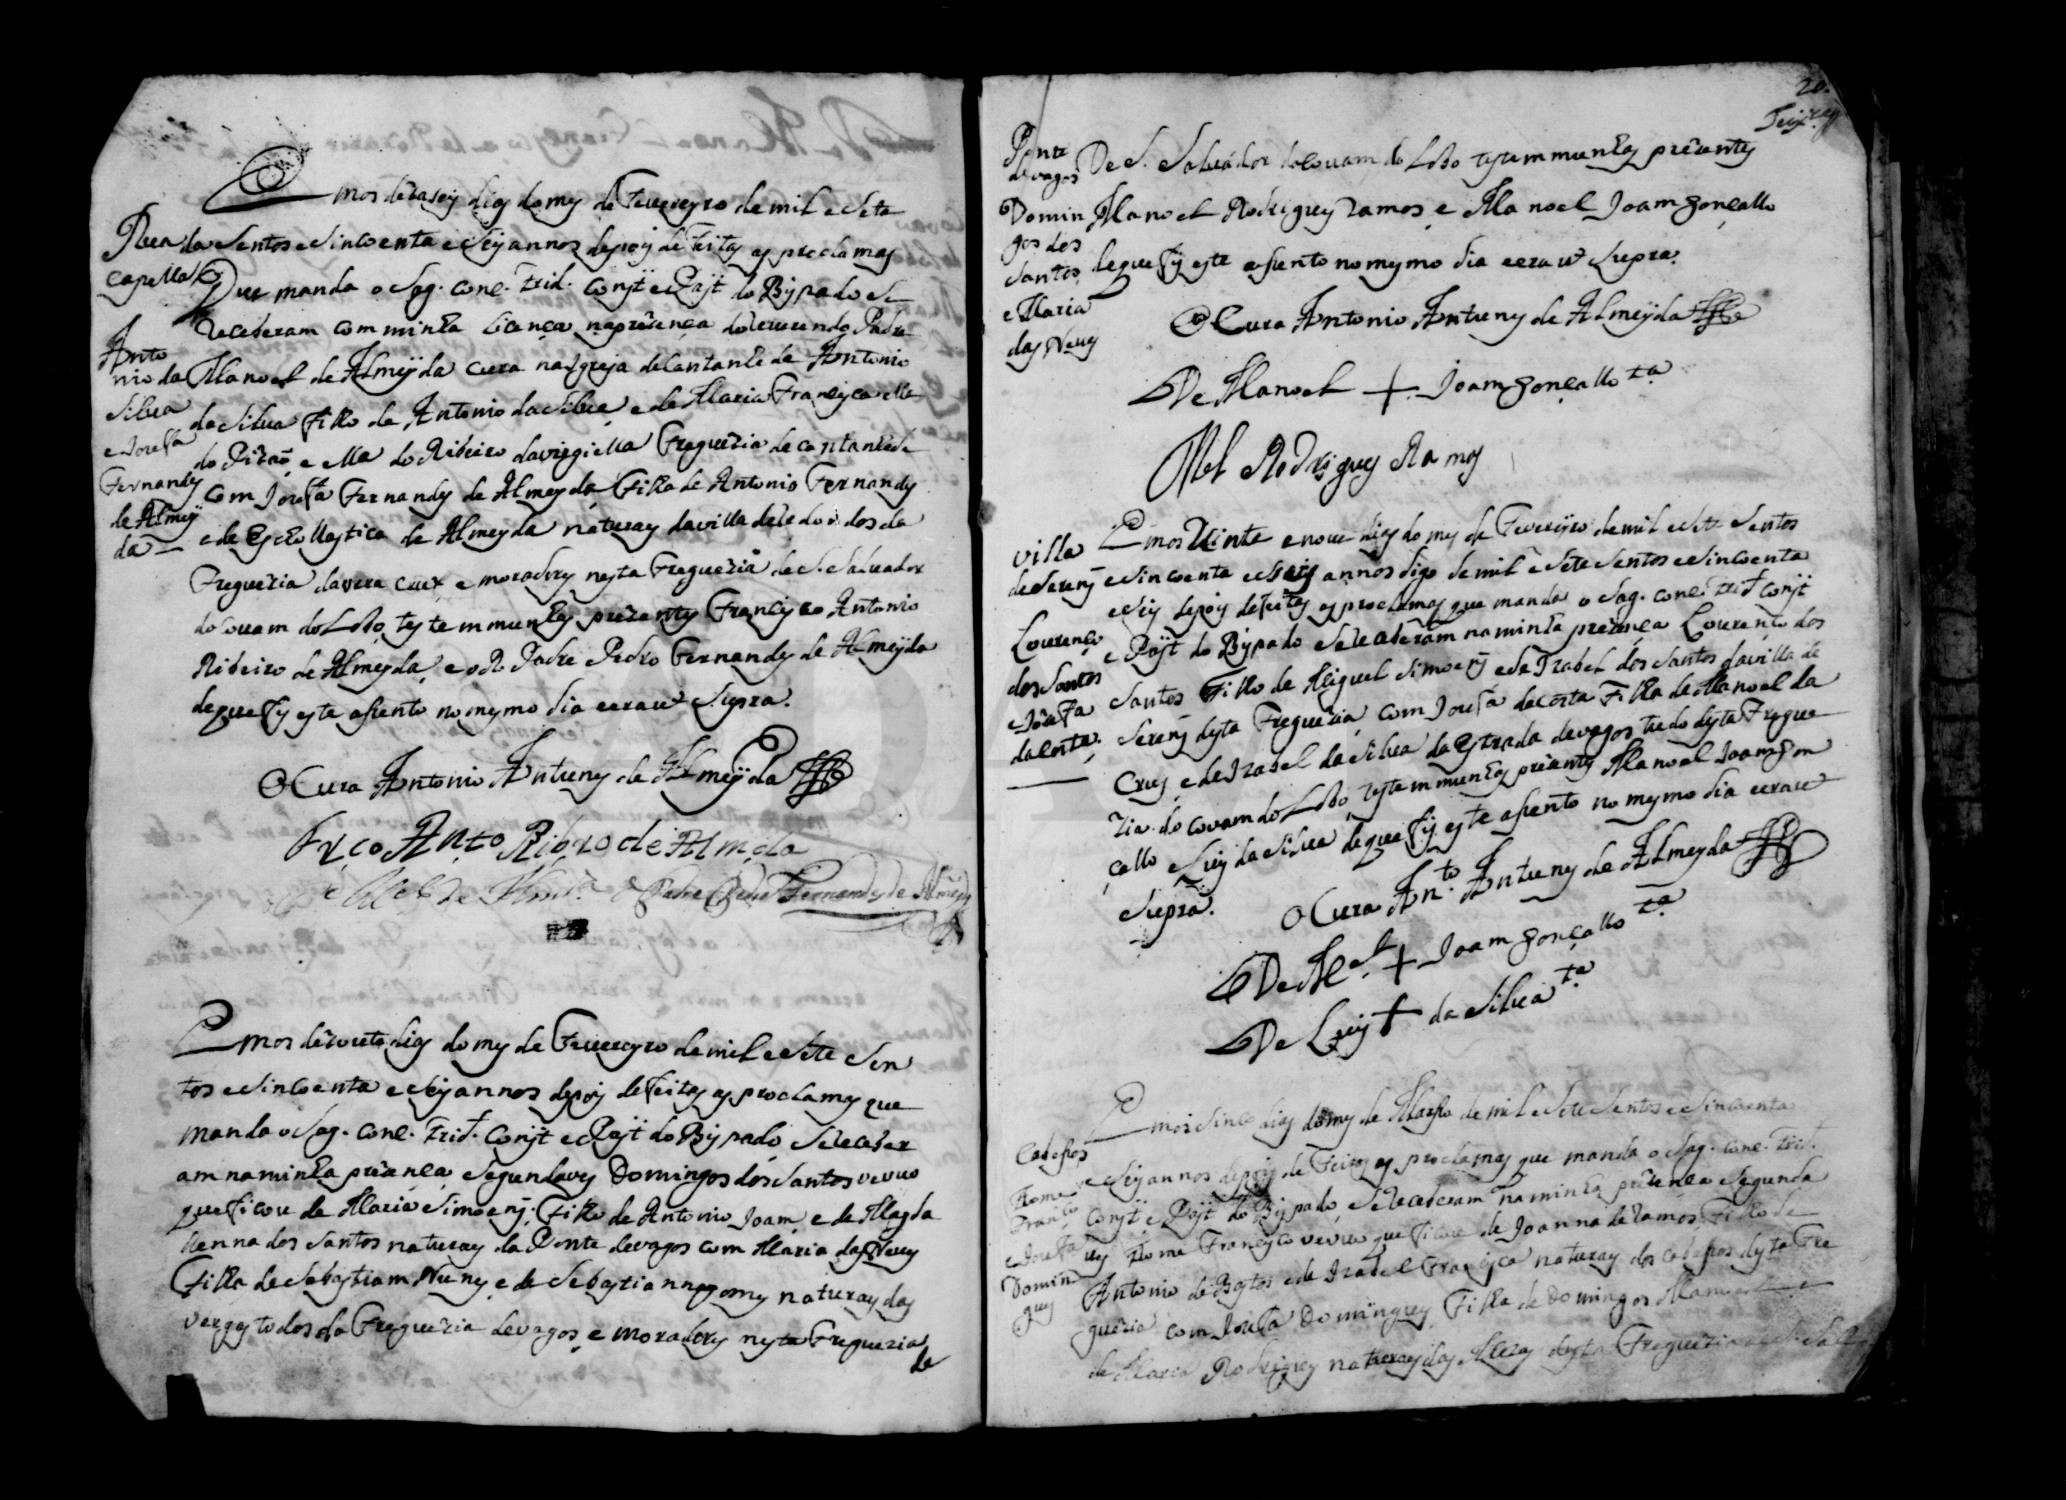 Rua da
capella
Anto
nio da
Silva
e Josefa
Fernandes
de Almey
da
Emos dezaseis dias do mes de Fevereyro de mil e sete
sentos e sincoenta e seis annos depois de feitos os proclamas
que manda o Sag. conc. Trid. const. e Const. do Bispado se
receberam com minha licença na prezença do Reverendo Padre
Manoel de Almeyda cura na Igreja de Cantanhede Antonio
da Silva filho de Antonio da Silva e de Maria Francisca elle
do e ella do Ribeiro da freguezia de Cantanhede
com Josefa Fernandes de Almeyda filha de Antonio Fernandes
e de Escollastica de Almeyda naturais da villa de todos da
Freguezia da vera crux e moradores nesta freguezia de S. Salvador
do Covam do Lobo testemmunhas prezentes Francisco Antonio
Ribeiro de Almeyda, e o R. Padre Pedro Fernandes de Almeyda
de que fis este asento no mesmo dia e era ut Supra.
O Cura Antonio Antunes de Almeyda
Frco Anto Ribro de Almda
Padre Pedro Fernandes de Almeyda
Emos dezouto dias do mes de Fevereyro de mil e sete sen
tos e sincoenta e seis annos depois de feitos os proclamas que
manda o Sag. conc. Trid. const. e Const. do Bispado se receber
am na minha prezença segunda ves Domingos dos Santos veuvo
que ficou de Maria Simoens, filho de Antonio Joam e de Magda
llenna dos Santos naturais da Ponte de vagos com Maria das Neves
Filha de Sebastiam Nunes e de Sebastianna gomes naturais das
vergas todos da Freguezia de vagos e moradores nesta Freguezia
de
20.
Ponte
de vagos
Domin
gos dos
Santos
e Maria
das Neves
De S. Salvador do Covam do Lobo testemmunhas prezentes
Manoel Rodrigues Ramos e Manoel Joam gonçallo
de que fis este asento no mesmo dia e era ut Supra.
O Cura Antonio Antunes de Almeyda
De Manoel + Joam gonçallo ta
Mel Rodrigues Ramos
villa
de Serens
Lourenço
dos Santos
e Josefa
da Costa.
Emos vinte e nove dias do mes de Fevereiro de mil e sete sentos
e sincoenta e seis annos digo de mil e sete sentos e sincoenta
e seis depois de feitos os proclamas que manda o Sag. conc. Trid const
e Const. do Bispado se receberam na minha prezença Lourenço dos
Santos filho de Miguel Simoens e de Izabel dos Santos da villa de
Serens desta Freguezia, com Josefa da costa Filha de Manoel da
Crus e de Izabel da Silva da Estrada de vagos tudo desta Fregue
zia do covam do Lobo, testemmunhas prezentes Manoel Joam gon
çallo e Luis da Silva de que fis este asento no mesmo dia e era ut
Supra.
O Cura Anto Antunes de Almeyda
De Mel + Joam gonçallo ta
De Luis + da Silva ta
Thome
Francco
e Josefa
Domin
gues
Emos sinco dias do mes de Março de mil e sete sentos e sincoenta
e seis annos depois de feitos os proclamas que manda o Sag. conc. Trid.
const e Const do Bispado, se receberam na minha prezença segunda
ves Thome Francisco veuvo que ficou de Joanna de Ramos, filho de
Antonio de Bastos e de Izabel Francisca naturais dos desta Fre
guezia com Josefa Domingues Filha de Domingos Manoel e
de Maria Rodrigues naturais das desta Freguezia